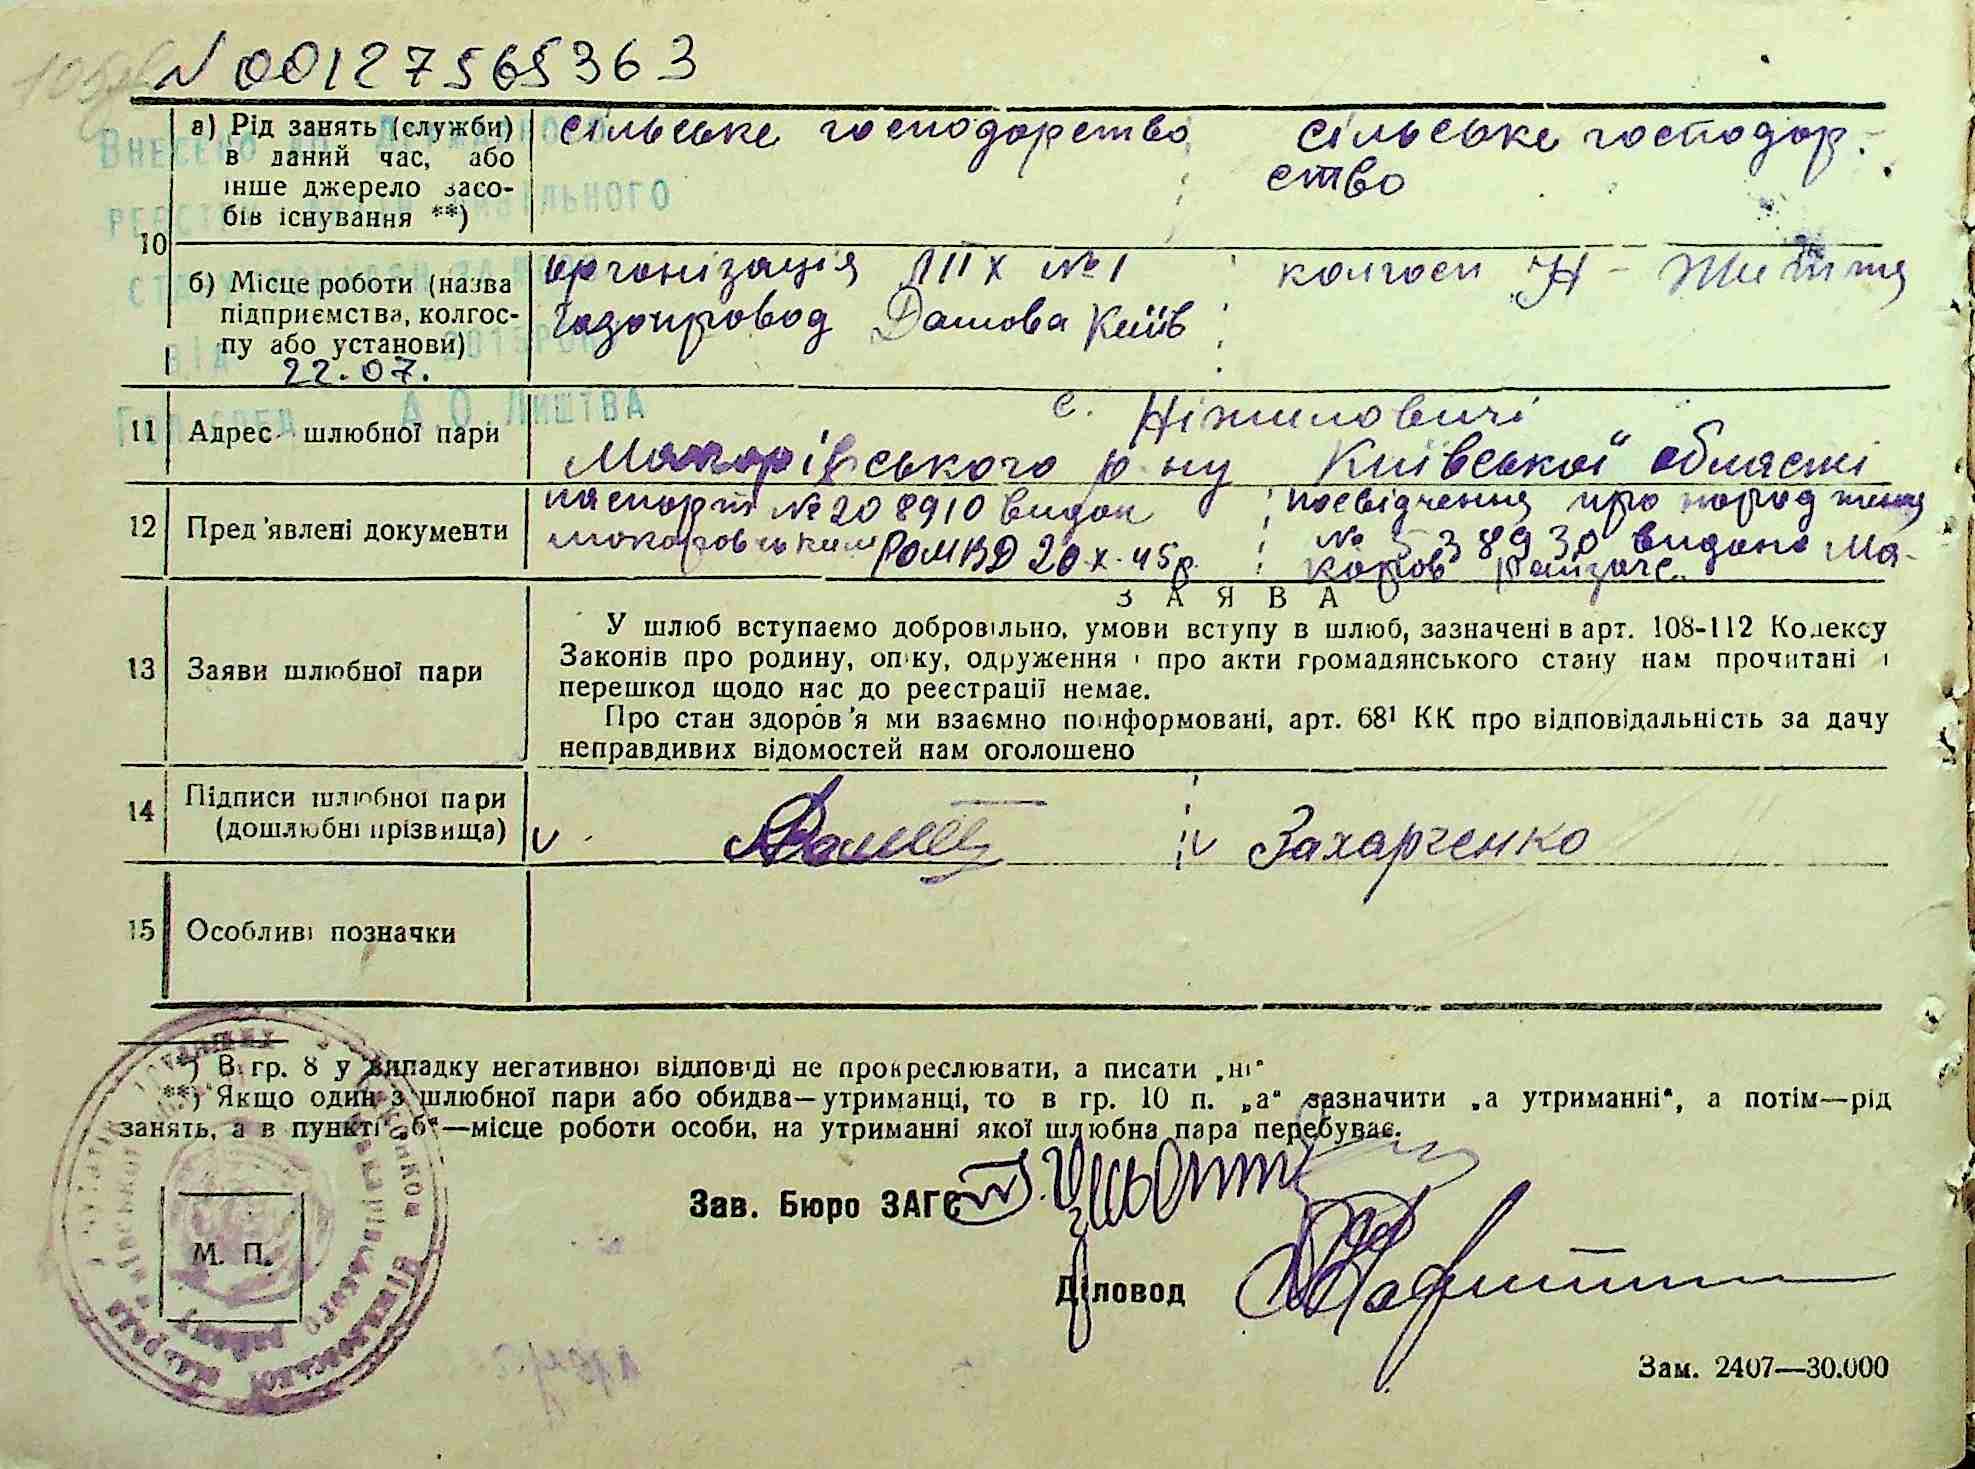 N 00127565363
а) Рід занять (служби)
в даний час, або
інше джерело засо-
бів існування **)
сільське господарство
сільське господар-
ство
Внесено до Державного
реєстру актів цивільного
10
б) Місце роботи (назва
підприємства, колгос-
пу або установи)
22.07.
організація №1
газопровод Дашова Київ
колгосп Н-Життя
А О Лиштва
11 Адреса шлюбної пари
с. Ніжиловичі
Макарівського р-ну Київської області
12 Пред'явлені документи
паспорт № 208910 видан
макаровським РОМВД 20-х-45р.
посвідчення про народження
№ 538930 видано Ма-
каров
13 Заяви шлюбної пари
ЗАЯВА
У шлюб вступаємо добровільно, умови вступу в шлюб, зазначені в арт. 108-112 Кодексу
Законів про родину, опіку, одруження і про акти громадянського стану нам прочитані і
перешкод щодо нас до реєстрації немає.
Про стан здоров'я ми взаємно поінформовані, арт. 68¹ КК про відповідальність за дачу
неправдивих відомостей нам оголошено
14 Підписи шлюбної пари
(дошлюбні прізвища)
v
v Захарченко
15 Особливі позначки
*) В гр. 8 у випадку негативної відповіді не прокреслювати, а писати „ні“
**) Якщо один з шлюбної пари або обидва—утриманці, то в гр. 10 п. „а“ зазначити „а утриманні“, а потім—рід
занять, а в пункті „б“—місце роботи особи, на утриманні якої шлюбна пара перебуває.
Зав. Бюро ЗАГС
М. П.
Діловод
Зам. 2407—30.000